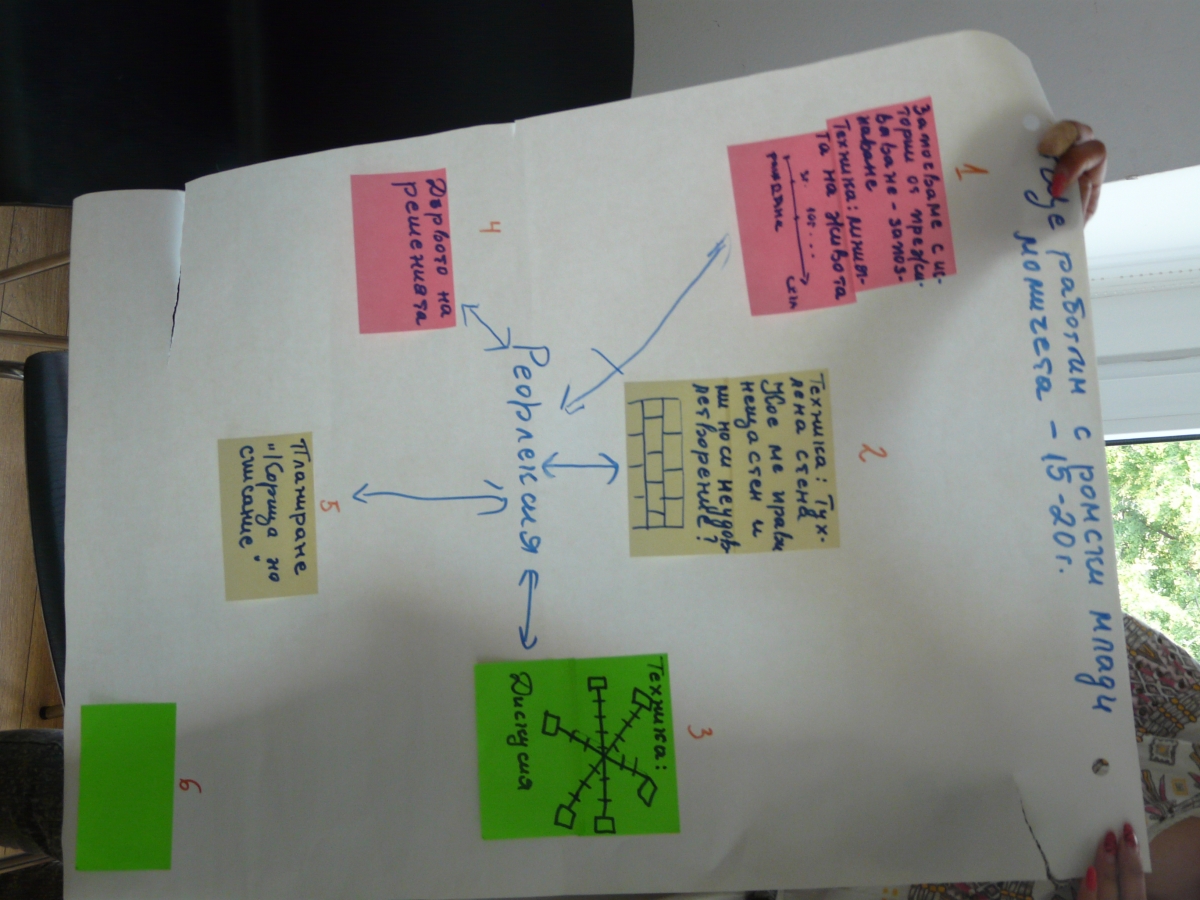 Ще работим с ромски млади
момичета - 15-20г.
1
Запосваме с ис-
тории от прежи-
вяване - запоз-
наване
Техника: линия-
та на живота
раждане
сега
2
Техника: Тух-
лена стена
Кое ме прави
нещастен и
ми носи неудов
летворение?
3
Техника:
Дискусия
Рефлексия
4
Дървото на
решенията
5
Планиране
"Корица на
списание"
6